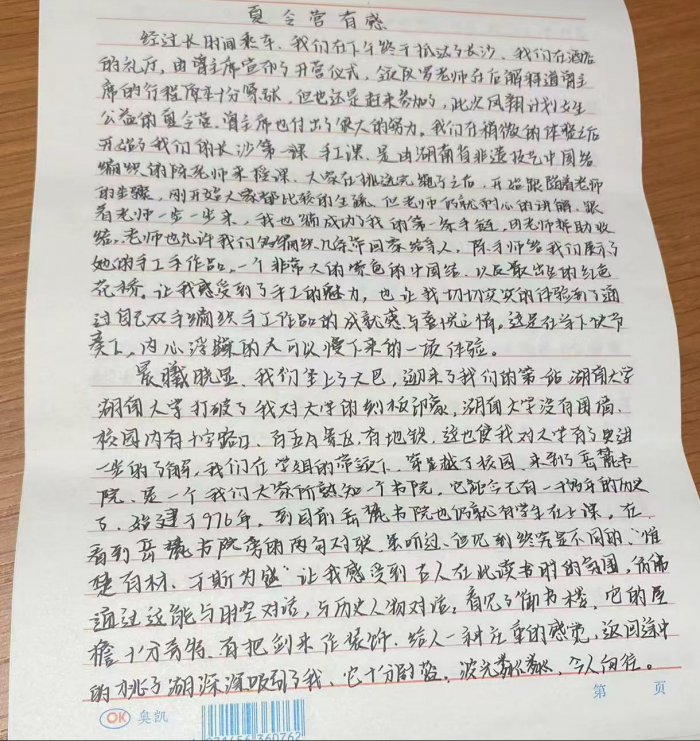 夏令营有感
经过长时间乘车、我们在下午终于抵达了长沙、我们在酒店
的礼厅,由曾主席宣布了开营仪式,老师在后解释道曾主
席的行程原本十分紧张,但也还是赶来参加了,此次凤翔计划女生
公益的夏令营、曾主席也付出了很大的努力。我们在稍微的体验之后
开始了我们的长沙第一课 手工课、是由湖南省非遗技艺中国结
编织的陈老师来授课、大家在挑选完绳子之后,开始跟随着老师
的步骤,刚开始大家都比较的生疏、但老师仍就耐心的讲解、跟
着老师一步一步来,我也编成功了我的第一条手链,由老师帮助收
结,老师也允许我们多编织几条带回家给家人,陈老师给我们展示了
她的手工手作品,一个非常大的橙色的中国结、以及散出的红色
花桥。让我感受到了手工的魅力,也让我切切实实的体验到了通
过自己双手编织手工作品的成就感与喜悦之情。这是在当下快节
奏下,内心浮躁的人可以慢下来的一项体验。
晨曦晓显、我们坐上了大巴,迎来了我们的第一站 湖南大学
湖南大学打破了我对大学的刻板印象,湖南大学没有围墙、
校园内有十字路口、有五月广场,有地铁,这也使我对大学有了更进
一步的了解,我们在学姐的带领下、穿越了校园、来到了岳麓书
院、是一个我们大家所熟知一个书院,它距今已有一千多年的历史
了、始建于976年,到目前岳麓书院也仍就有学生在上课,在
看到岳麓书院旁的两句对联、虽听过、但见到终究是不同的,“惟
楚有材、于斯为盛”让我感受到古人在此读书时的氛围,仿佛
通过这能与时空对话,与历史人物对话;看见了御书楼,它的屋
檐十分奇特、有把剑来作装饰,给人一种庄重的感觉,返回途中
的桃子湖深深吸引了我、它十分的蓝,波光粼粼,令人向往。
第 页
OK 奥凯